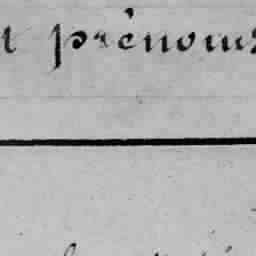 t prénoms